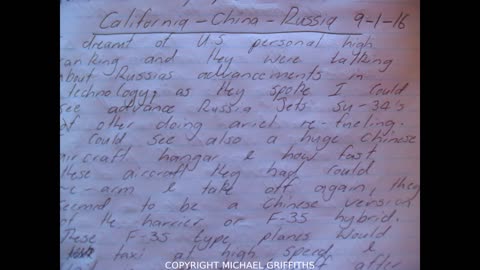 California - China - Russia 9-1-16
I dreamt of U.S personal high
ranking and they were talking
about Russias advancements in
technology, as they spoke I could
see advance Russia Jets Su-34's
of other doing ariel re-fueling.
Could see also a huge Chinese
aircraft hangar & how fast
these aircraft they had could
re-arm & take off again, they
seemed to be a Chinese version
of the harrier or F-35 hybrid.
These F-35 type planes would
taxi at high speed &
after
COPYRIGHT MICHAEL GRIFFITHS